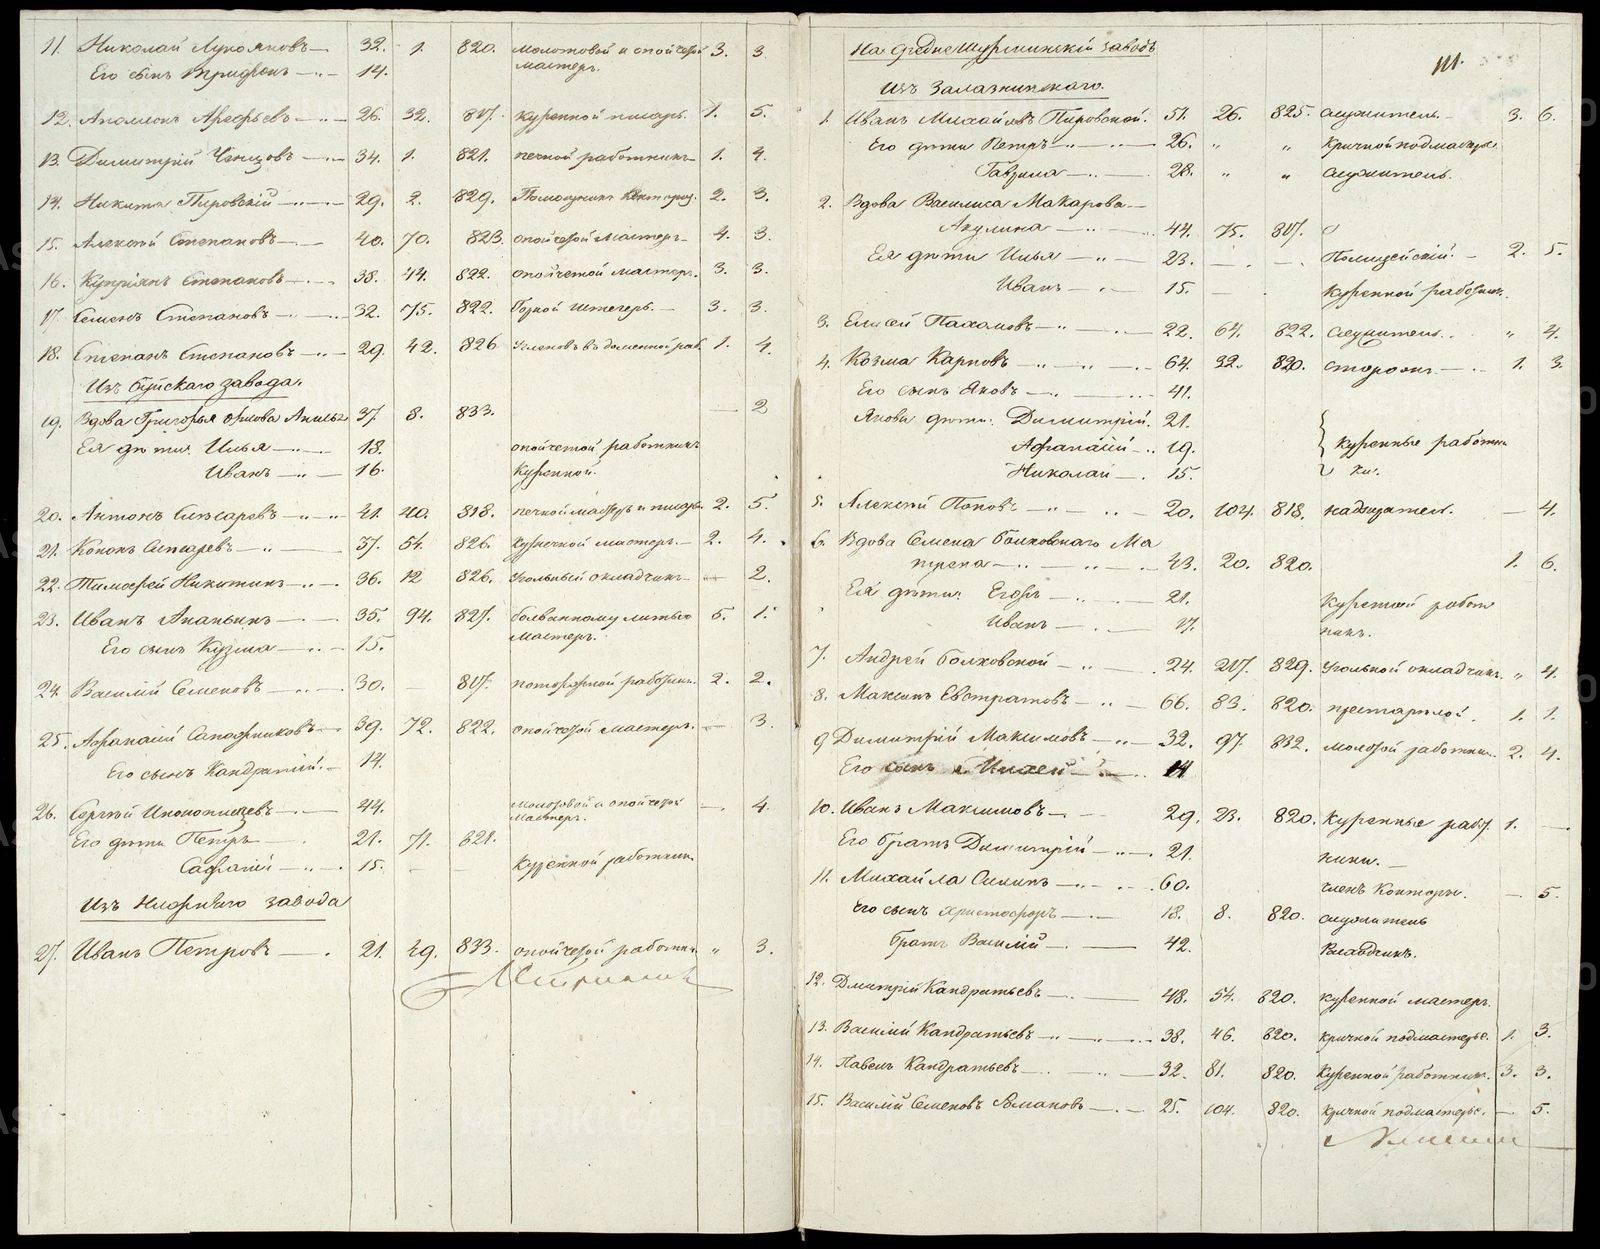 11. Николай Лукояновъ 32. 1. 820. молотовой и опойчетой 3. 3.
Его сынъ Трифонъ 14. мастеръ.
12. Аполлонъ Арефьевъ 26. 32. 817. куренной писарь. 1. 5.
13. Димитрій 34. 1. 821. печной работникъ 1. 4.
14. Никита Пировскій 29. 2. 829. 2. 3.
15. Алексѣй Степановъ 40. 70. 823. мастеръ 4. 3.
16. Купріянъ Степановъ 38. 44. 822. мастеръ. 3. 3.
17. Семенъ Степановъ 32. 75. 822. Горной штегеръ. 3. 3.
18. Степанъ Степановъ 29. 42. 826 въ доменной раб. 1. 4.
Изъ Буйскаго завода.
19. Вдова Григорья Орлова 37. 8. 833. — 2
Ея дѣти Илья 18. работникъ
Иванъ 16. Куренной.
20. Антонъ Слѣсаревъ 41. 40. 818. 2. 5.
21. Кононъ Слѣсаревъ 37. 54. 826. Кузнечной мастеръ. 2. 4.
22. Тимофей Никитинъ 36. 12 826. Угольный окладчикъ — 2.
23. Иванъ Ананьинъ 35. 94. 827. болванному литью 5. 1.
Его сынъ Кузма 15. мастеръ.
24. Василій Семеновъ 30. — 817. работник. 2. 2.
25. Афанасій Сапожниковъ 39. 72. 822. мастеръ. — 3.
Его сынъ Кандратій. 14.
26. Сергѣй 44. молотовой и опойчетой — 4.
мастеръ.
Его дѣти Петръ 21. 71. 821.
15. — — Куренной работникъ
Изъ завода
27. Иванъ Петровъ 21. 49. 833. работни. „ 3.
На Среднешурминскій заводъ
111.
Изъ Залазнинскаго.
1. Иванъ Михайловъ Пировской. 51. 26. 825. служитель. 3. 6.
Его дѣти Петръ 26. „ „ Кричной подмастерье
Гаврила 28. „ „ служитель.
2. Вдова Василиса Макарова
Акулина 44. 75. 817.
Ея дѣти Илья 23. — — Полицейскій. 2. 5.
Иванъ 15. Куренной работник.
3. Елисей Пахомовъ 22. 64. 822. служитель. „ 4.
4. Козма Карповъ 64. 32. 820. сторожъ 1. 3.
Его сынъ Яковъ 41.
Якова дѣти: Димитрій. 21.
Афанасій 19. куренные работни
Николай 15. ки.
5. Алексѣй Поповъ 20. 104. 818. надзиратель. — 4.
6. Вдова Семена Болковскаго Ма
трена 43. 20. 820. 1. 6.
Ея дѣти: Егоръ 21. Куренной работ
Иванъ 17. никъ.
7. Андрей Болховской 24. 217. 829. угольной окладчикъ. „ 4.
8. Максимъ Евстратовъ 66. 83. 820. престарѣлой. 1. 1.
9 Димитрій Максимовъ 32. 97. 832. работник. 2. 4.
Его сынъ 14
10. Иванъ Максимовъ 29. 23. 820. Куренные работ. 1. —
Его братъ Димитрій 21. ники.
11. Михайла Силинъ 60. членъ Конторы. — 5.
его сынъ Христофоръ 18. 8. 820. служитель
братъ Василій 42.
12. Дмитрій Кандратьевъ 48. 54. 820. куренной мастеръ.
13. Василій Кандратьевъ 38. 46. 820. кричной подмастерье. 1. 3.
14. Павелъ Кандратьевъ 32. 81. 820. Куренной работник. 3. 3.
15. Василій Семеновъ Романовъ 25. 104. 820. кричной подмастерье. — 5.